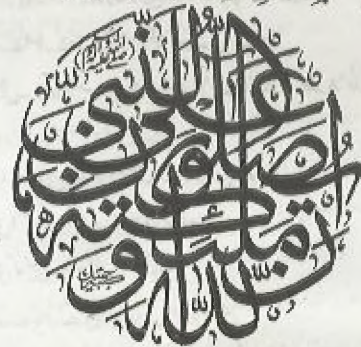 إن الله وملئكته يصلون على النبي